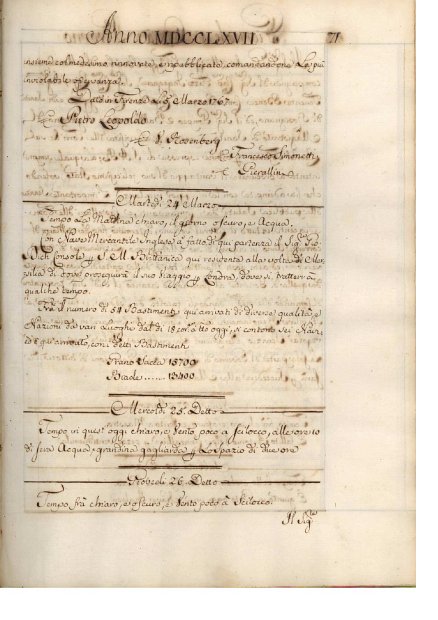 Anno MDCCLXVII 71
insieme col medesimo rinnovate, e ripubblicate, comandandone la più
inviolabile osservanza.
Dato in Firenze li 5 Marzo 1767
Pietro Leopoldo
V. Rosenberg
Francesco Simonetti
C. Pierallini
Martedì 24 Marzo
Tempo la Mattina chiaro, il giorno oscuro, e Acqua.
Con Nave Mercantile Inglese à fatto di qui partenza il Sigr.
Dick Console p S. M. Brittanica qui residente alla volta di
di dove proseguirà il suo Viaggio p Londra, dove si tratterrà
qualche tempo.
Frà il numero di 54 Bastimenti qui arrivati di diverse qualità, e
Nazioni da vari luoghi dal dì 18 cor.e a tto oggi, si contono sei
e qui arrivato, con i detti Bastimenti
Grano Sacca 15700
Biade 13400
Mercoldì 25. Detto
Tempo in quest' oggi chiaro, e Vento poco à Scilocco, alle ore
di sera Acqua, e grandine gagliarda p lo spazio di due ore
Giovedì 26. Detto
Tempo frà chiaro, e oscuro, e Vento poco à Scilocco.
Il Sigre